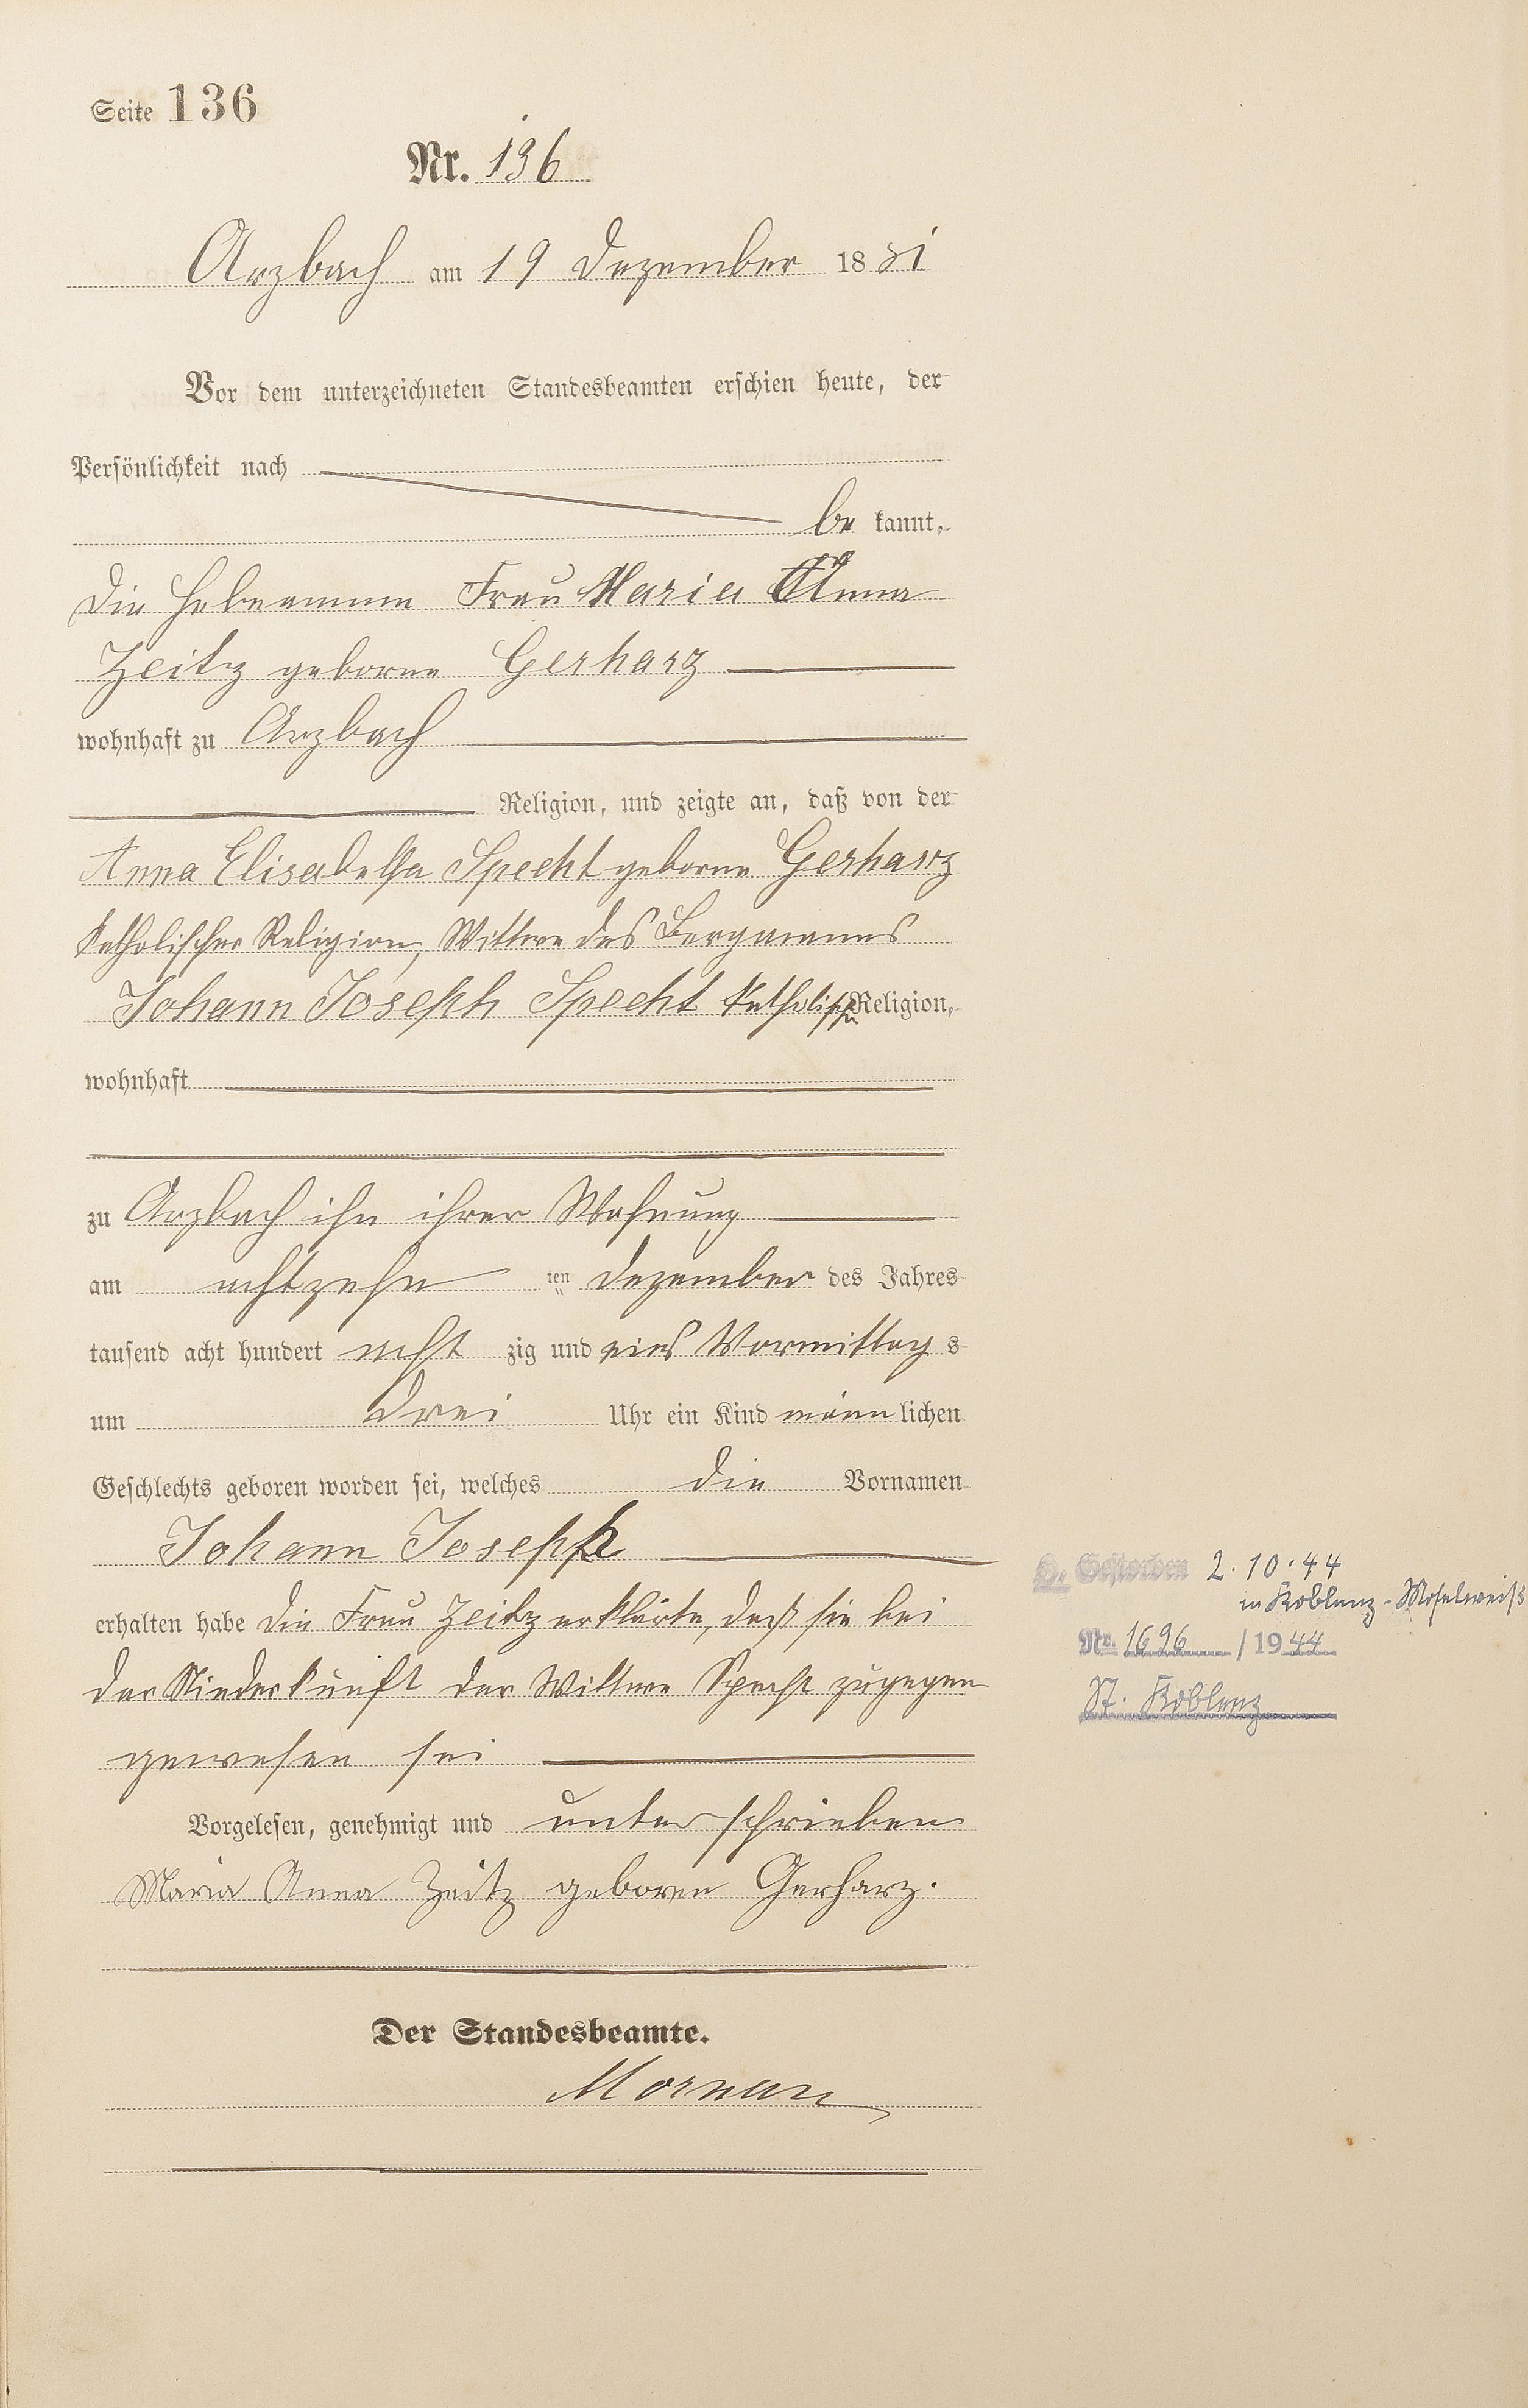 Seite 136
Nr. 136
Arzbach am 19 Dezember 1881
Vor dem unterzeichneten Standesbeamten erschien heute, der
Persönlichkeit nach
be kannt,
die Hebeamme Frau Maria Anna
Zeitz geborne Gerharz
wohnhaft zu Arzbach
Religion, und zeigte an, daß von der
Anna Elisabetha Specht geborne Gerharz
katholischer Religion, Wittwe des Bergmanns
Johann Joseph Specht katholisch Religion,
wohnhaft
zu Arzbach ihn ihrer Wohnung
am achtzehn ten Dezember des Jahres
tausend acht hundert acht zig und eins Vormittag s
um drei Uhr ein Kind männ lichen
Geschlechts geboren worden sei, welches die Vornamen
Johann Joseph
erhalten habe die Frau Zeitz erklärte, daß sie bei
der Niederkunft der Wittwe Specht zugegen
gewesen sei
Vorgelesen, genehmigt und unterschrieben
Maria Anna Zeitz geboren Gerharz.
Der Standesbeamte.
H. Gestorben 2.10.44
in Koblenz-Moselweiß
Nr. 1696 / 1944
St. Koblenz